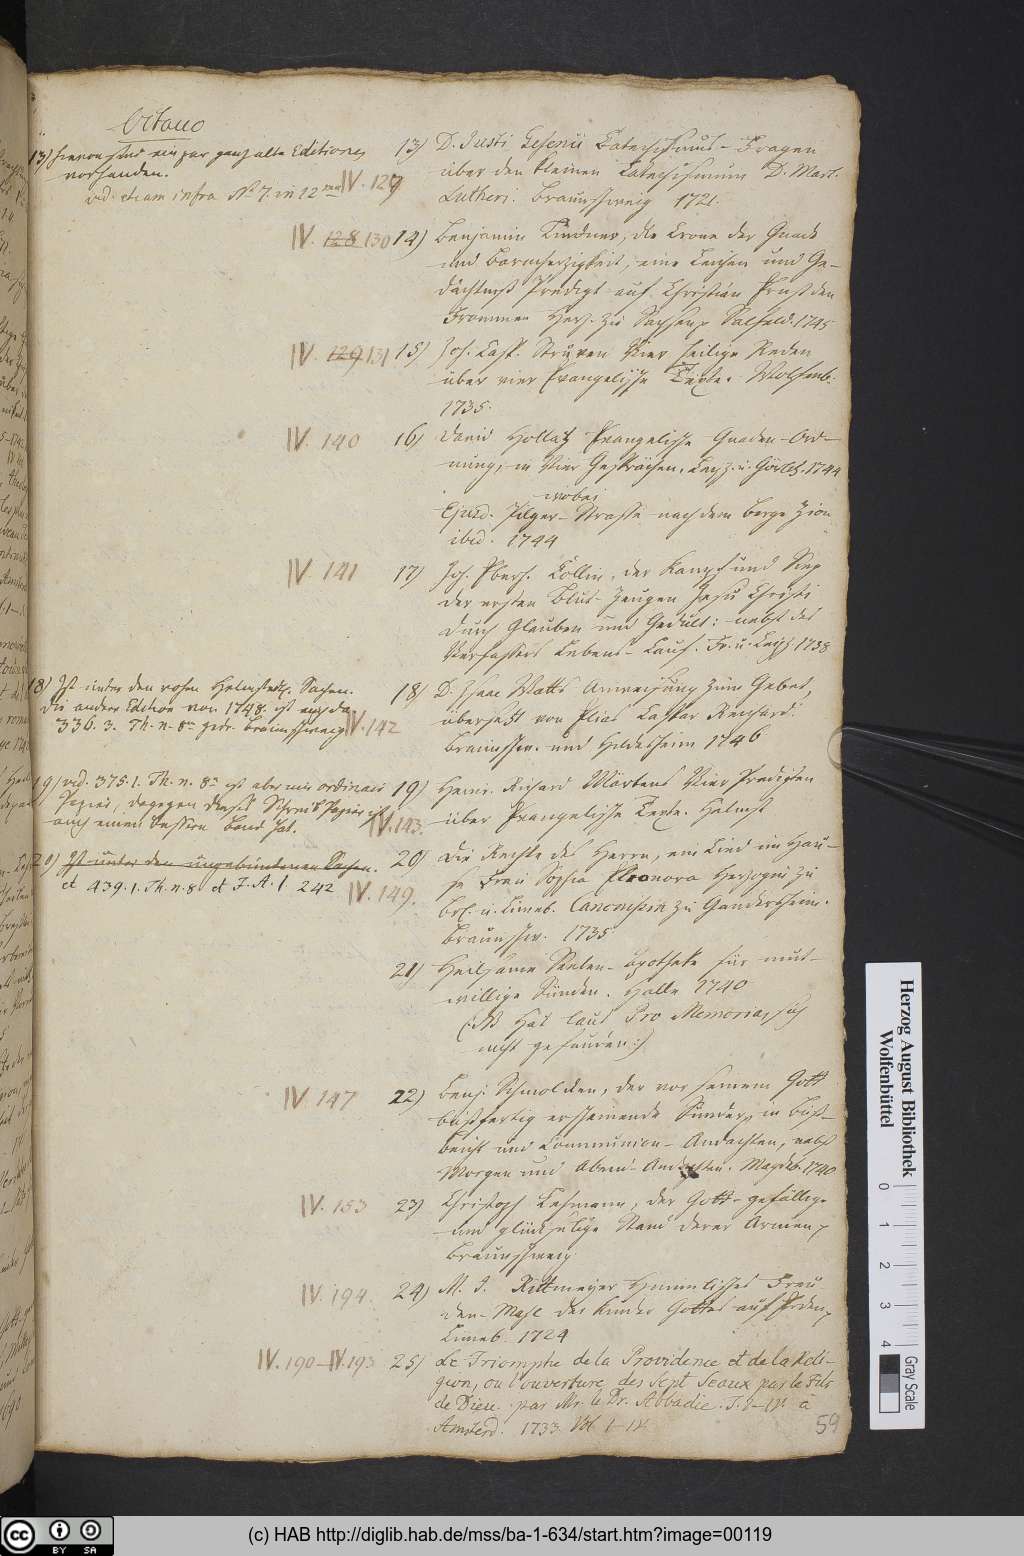 Octavo
13) hievon sind ein par ganz alte Editiones
vorhanden.
vid. etiam infra No 7. in 12mo
IV. 129
13) D. Justi Gesenii Catechismus-Fragen
über den kleinen Catechismum D. Mart.
Lutheri. Braunschweig 1721.
IV. 128 130 14) Benjamin Lindner, die Crone der Gnade
und Barmherzigkeit, eine Leichen und Ge-
dächtniß Predigt auf Christian Ernst den
Frommen Herz. zu Sachsen Salfeld. 1745
IV. 129 131 15) Joh. Casp. Strüven Vier heilige Reden
über vier Evangelische Texte. Wolfenb.
1735.
IV. 140 16) David Hollatz Evangelische Gnaden-Ord-
nung, in Vier Gesprächen. Leipz. u. Görlitz. 1744
wobei
Ejusd. Pilger-Strasse nach dem Berge Zion
ibid. 1744
IV. 141 17) Joh. Eberh. Collin, der Kampf und Sieg
der ersten Blut-Zeugen Jesu Christi
durch Glauben und Gedult: nebst des
Verfassers Lebens-Lauf. Fr. u. Leipz 1738
18) Ist unter den rohen Helmstedt. Sachen.
die andere Edition von 1748. ist auch da
336. 3. Th. n. 8o gedr. Braunschweig
IV. 142
18) D. Isaac Watts Anweisung zum Gebet,
übersetzt von Elias Caspar Reichard.
Braunschw. und Hildesheim 1746
19) vid. 375. 1. Th. n. 8o ist aber nur ordinair
Papier, dagegen dieses Schreib Papier ist
auch einen bessern Band hat.
IV. 143.
19) Heinr. Richard Märtens Vier Predigten
über Evangelische Texte. Helmst
20) Ist unter den ungebundenen Sachen.
et 439. 1. Th. n. 8 et F. A. 1 242
IV. 149.
20) Die Rechte des Herrn, ein Lied im Hau-
se Frau Sophia Eleonora Herzogin zu
Br. u. Lüneb. Canonissin zu Gandersheim.
Braunschw. 1735
21) Heilsame Seelen-Apotheke für mut-
willige Sünden. Halle 1740
(NB Hat laut Pro Memoria, sich
nicht gefunden:)
IV. 147 22) Benj. Schmolcken, der vor seinem Gott
bußfertig erscheinende Sünder, in Buß-
Beicht und Communion-Andachten, nebst
Morgen und Abend-Andachten. Magdeb. 1740
IV. 153 23) Christoph Lehmann, der Gott-gefällige
und glückselige Stand derer Armen,
Braunschweig
IV. 194. 24) M. J. Rittmeyer Himmlisches Freu
den-Mahl der Kinder Gottes auf Erden,
Lüneb. 1724
IV. 190-IV. 193 25) Le Triomphe de la Providence et de la Reli-
gion, ou l'ouverture des Sept Seaux par le Fils
de Dieu. par Mr. le Dr. Abbadie. T. I-IV à
Amsterd. 1733. Vol. I-IV.
59
Herzog August Bibliothek
Wolfenbüttel
0 1 2 3 4
Gray Scale
(c) HAB http://diglib.hab.de/mss/ba-1-634/start.htm?image=00119
cc BY SA